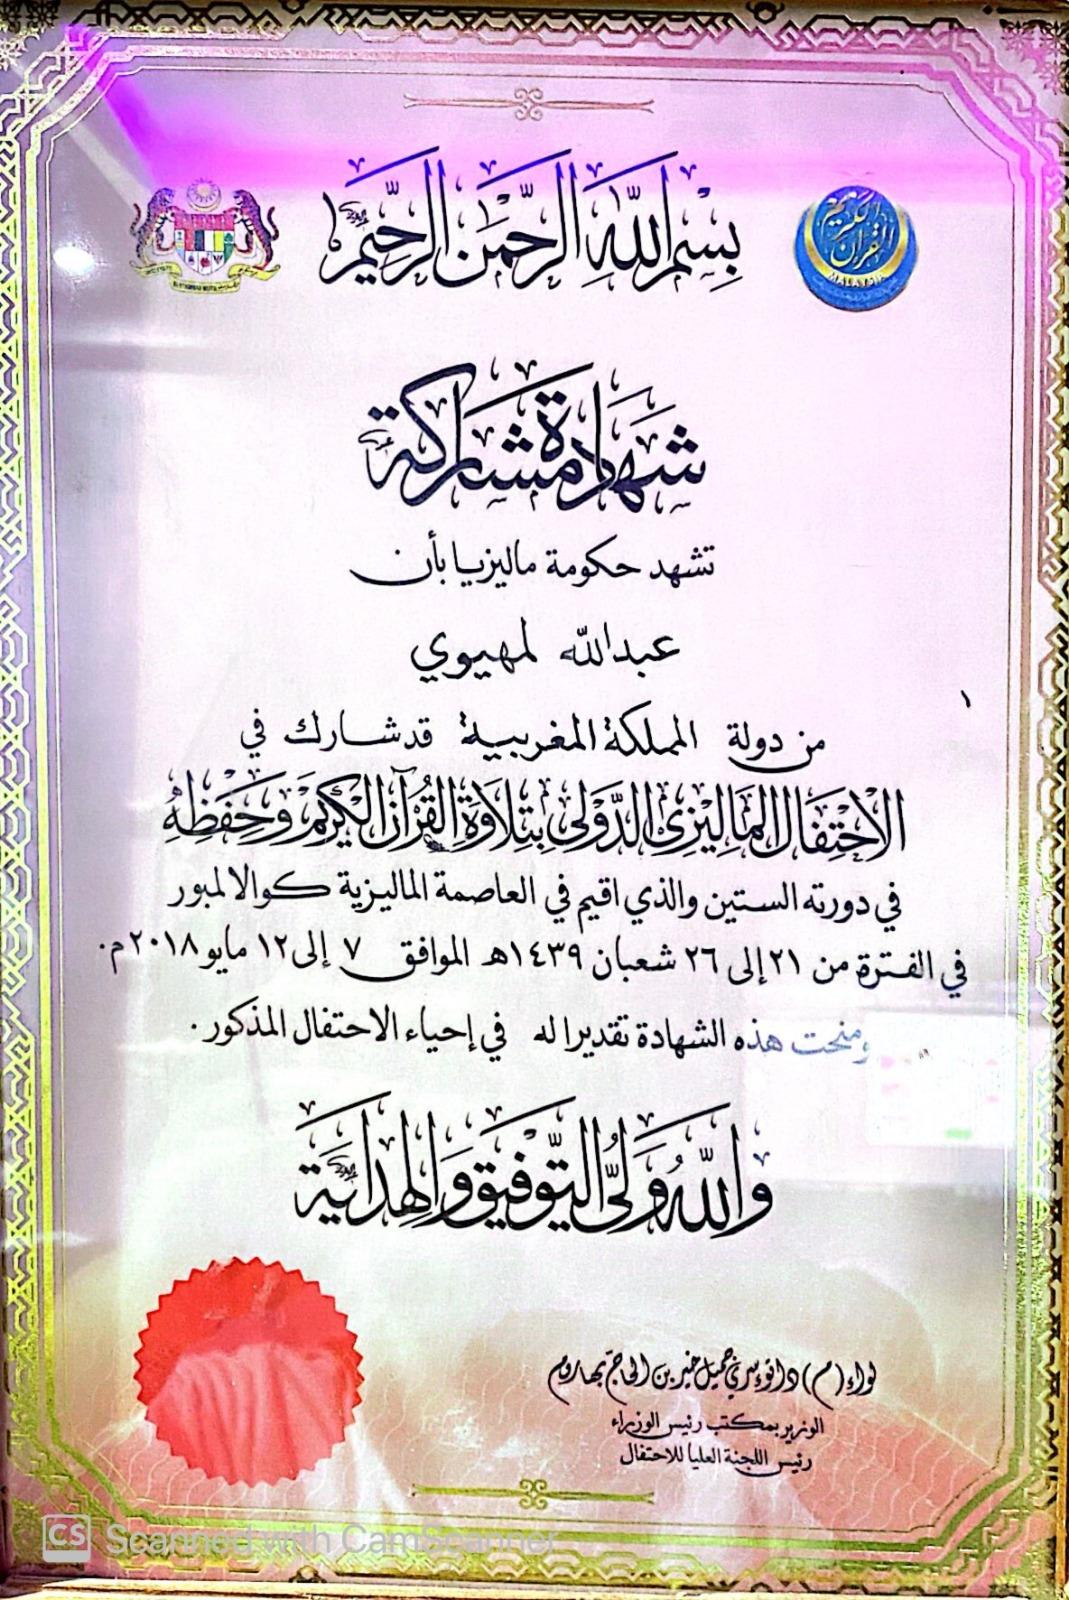 بِسْمِ اللَّهِ الرَّحْمَنِ الرَّحِيمِ
القرآن الكريم
MALAYSIA
شهادة مشاركة
تشهد حكومة ماليزيا بأن
عبدالله لمهيوي
من دولة المملكة المغربية قد شارك في
الاحتفال الماليزي الدولي بتلاوة القرآن الكريم وحفظه
في دورته الستين والذي اقيم في العاصمة الماليزية كوالالمبور
في الفترة من ٢١ إلى ٢٦ شعبان ١٤٣٩هـ الموافق ٧ إلى ١٢ مايو ٢٠١٨م.
ومنحت هذه الشهادة تقديرا له في إحياء الاحتفال المذكور.
والله ولي التوفيق والهداية
لواء (م) داتوء سري جميل خير بن الحاج بهاروم
الوزير بمكتب رئيس الوزراء
رئيس اللجنة العليا للاحتفال
CS Scanned with CamScanner